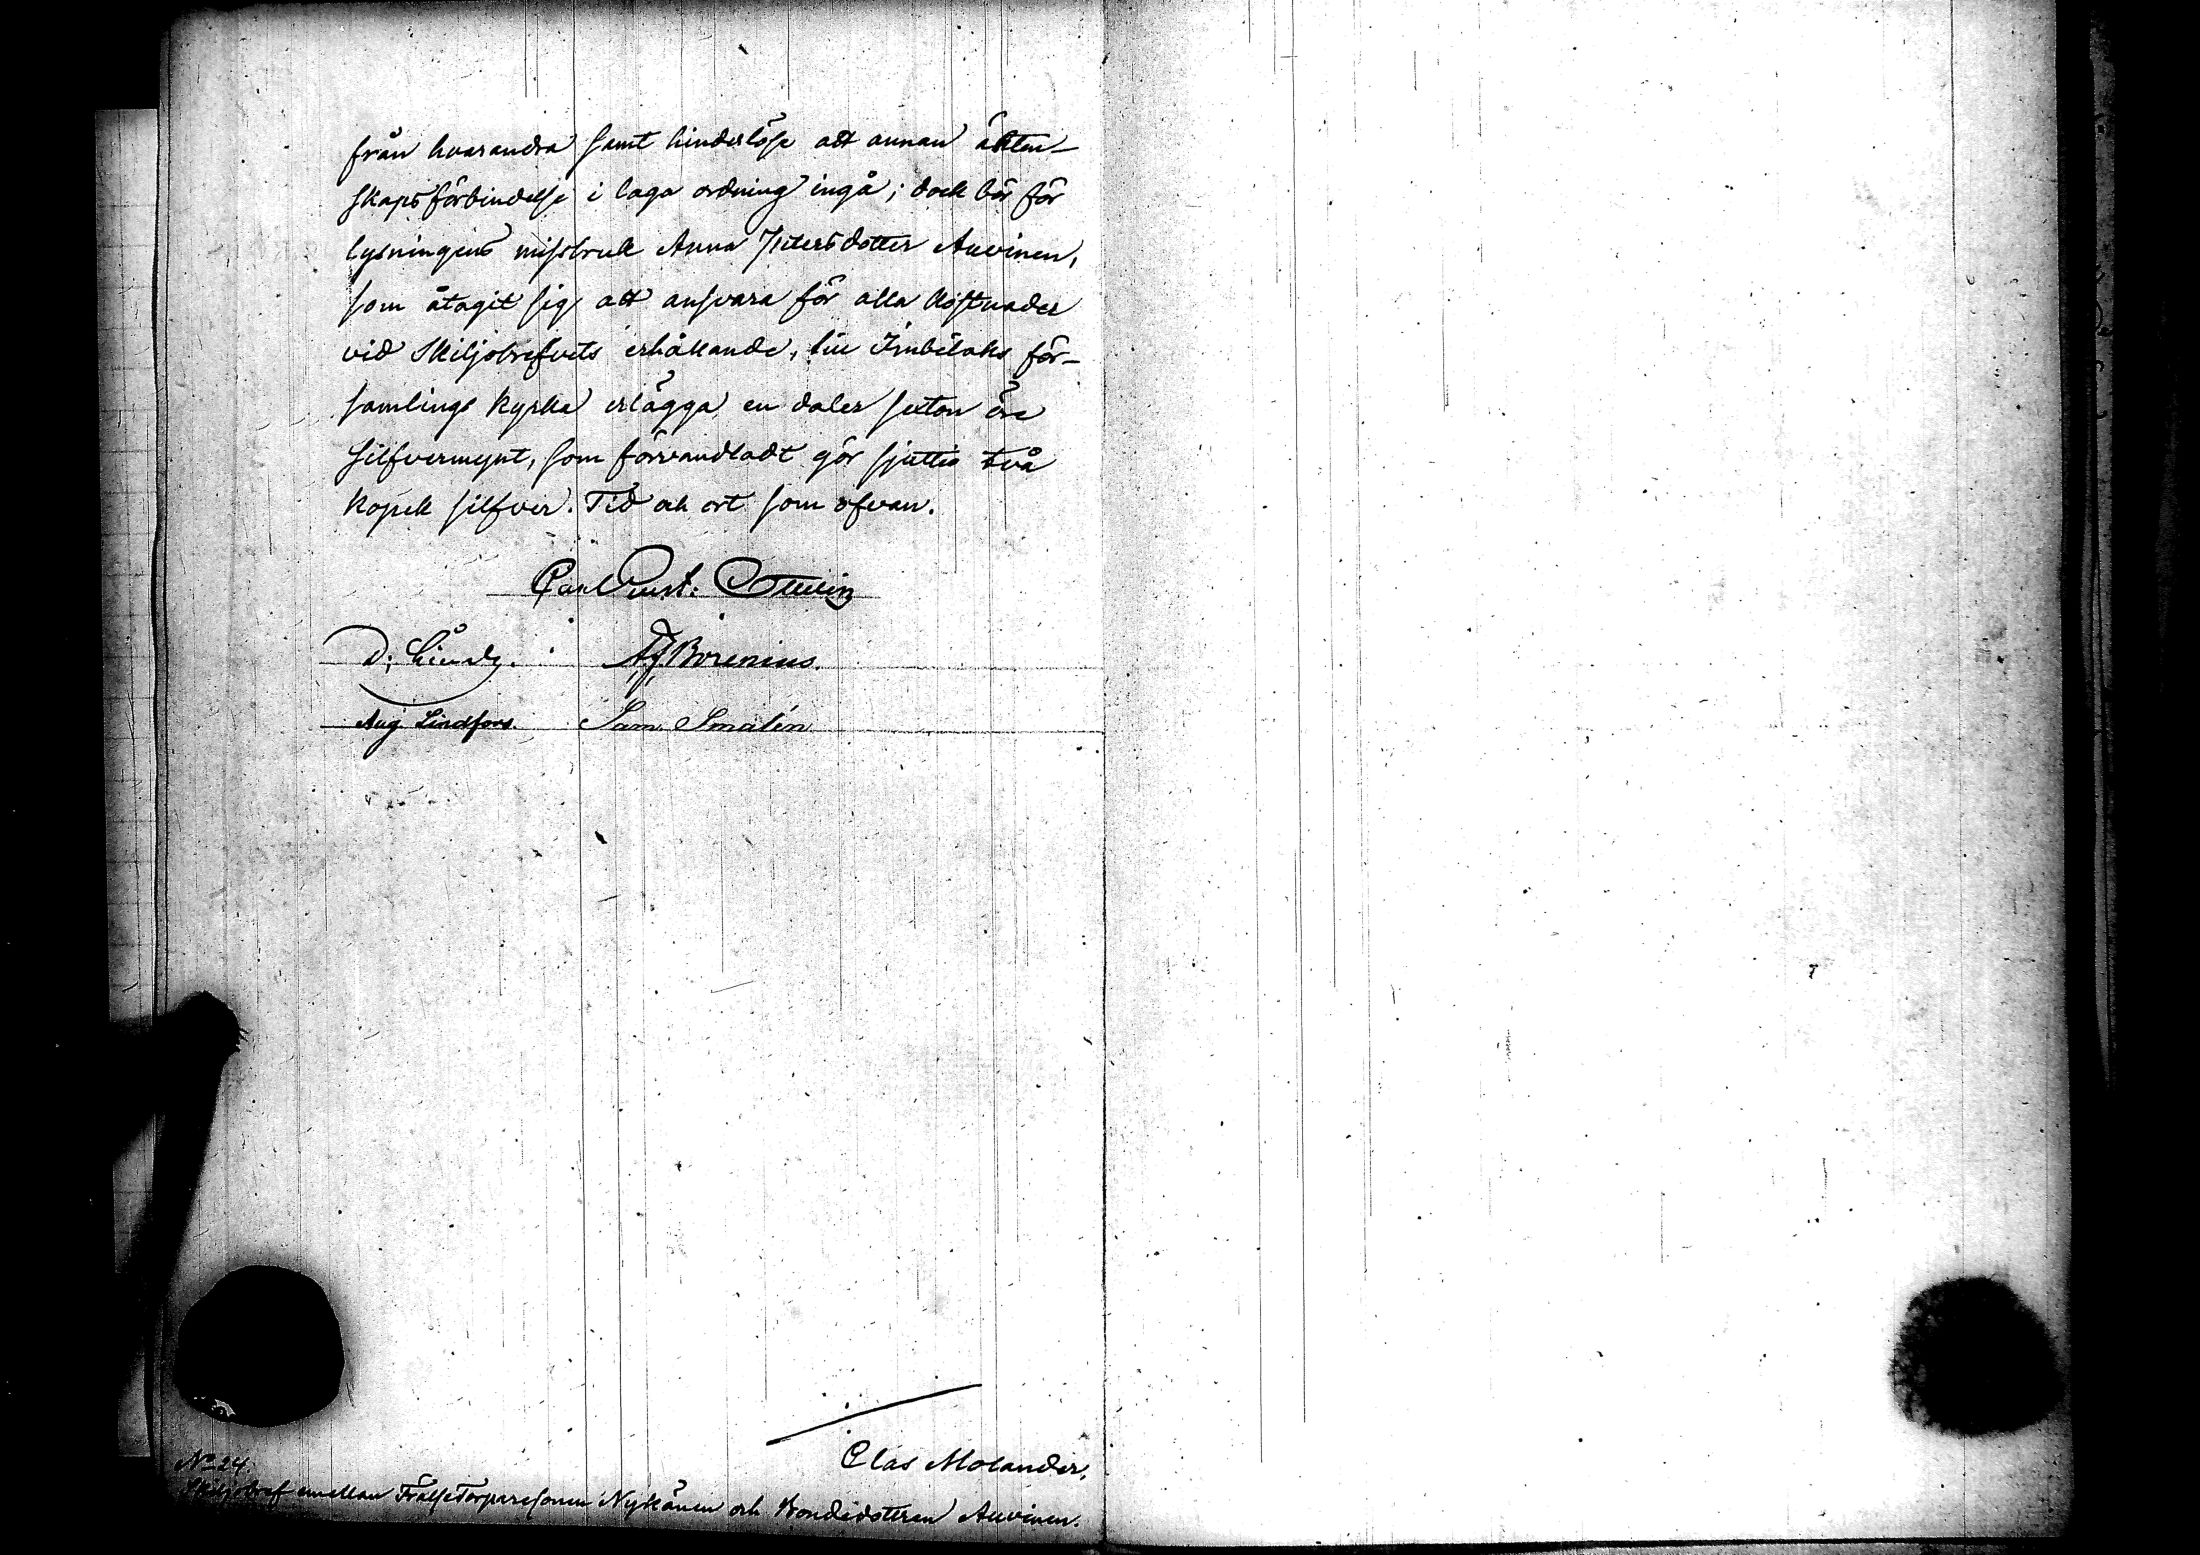 från hvarandra samt hinderlöse att annan äkten-
skapsförbindelse i laga ordning ingå; dock bör för
lysningens missbruk Anna Petersdotter Auvinen,
som åtagit sig att ansvara för alla kostnader
vid Skiljobrefvets erhållande, till Impilaks för-
samlings kyrka erlägga en daler sexton öre
silfvermynt, som förvandladt gör sjuttio två
kopek silfver. Tid och ort som ofvan.
Carl Ottelin
Borenius
Aug Lindfors. Sam. Smalén
Clas Molander.
No 24.
Skiljobref emellan Frälsetorparesonen Nykänen och Bondedottren Auvinen.